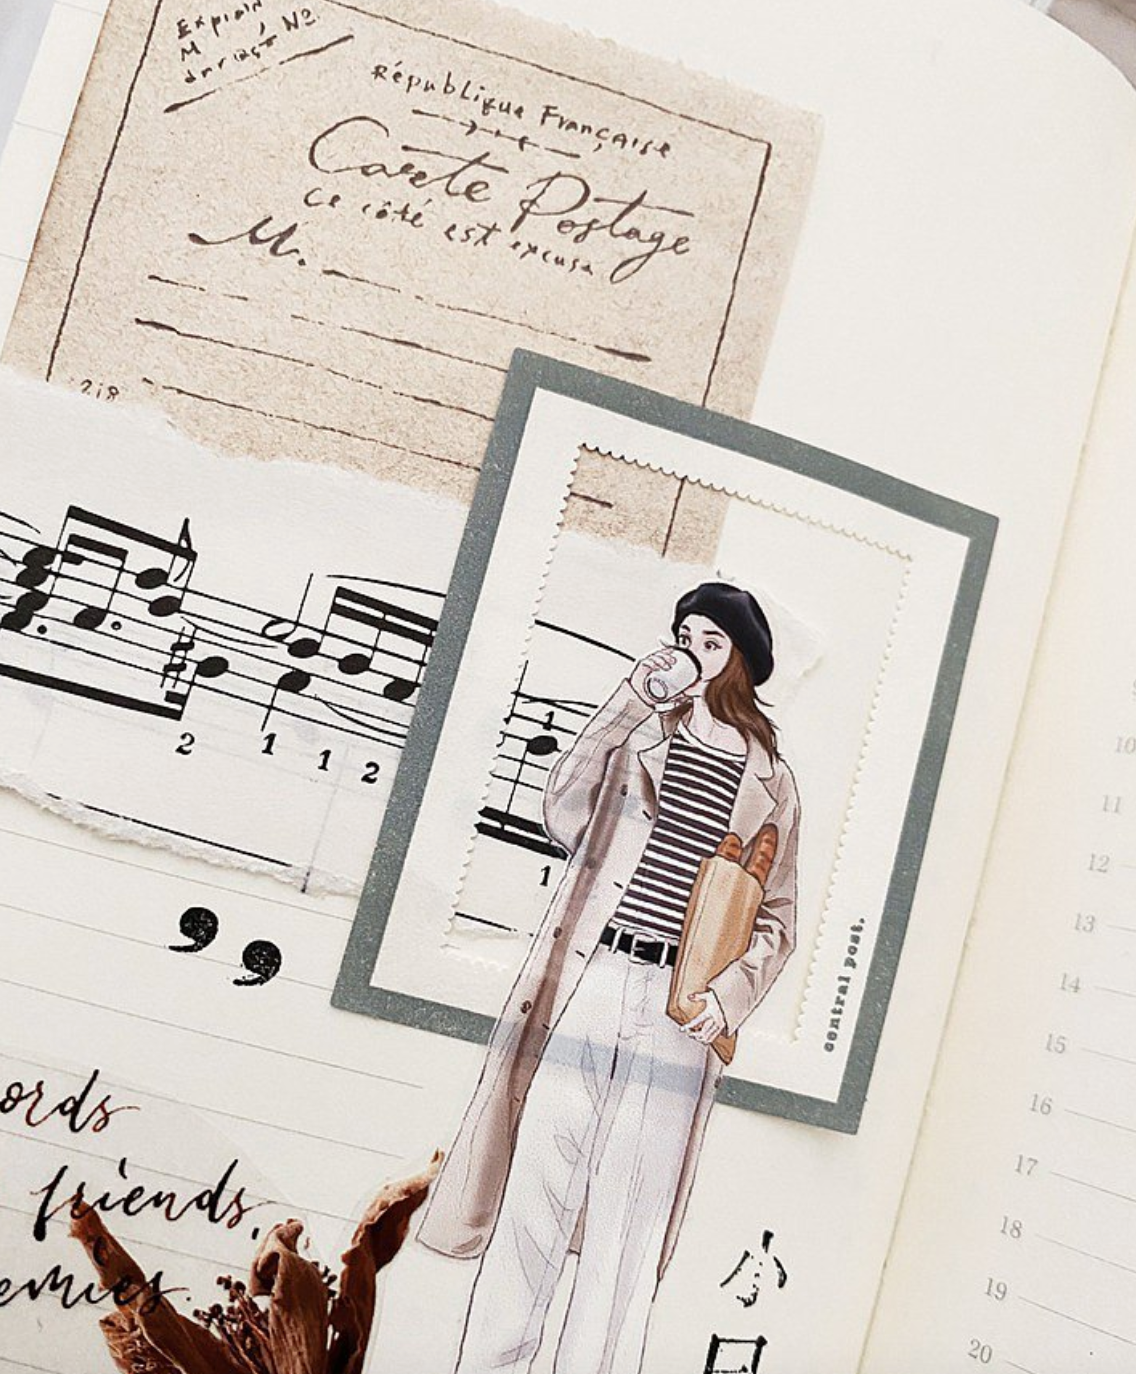 Explain
M , No
République Française
Carte Postage
Ce côté est excusa
M.
218
2 1 1 2
1
1
central post.
”
ords
friends,
emies.
小
10
11
12
13
14
15
16
17
18
19
20